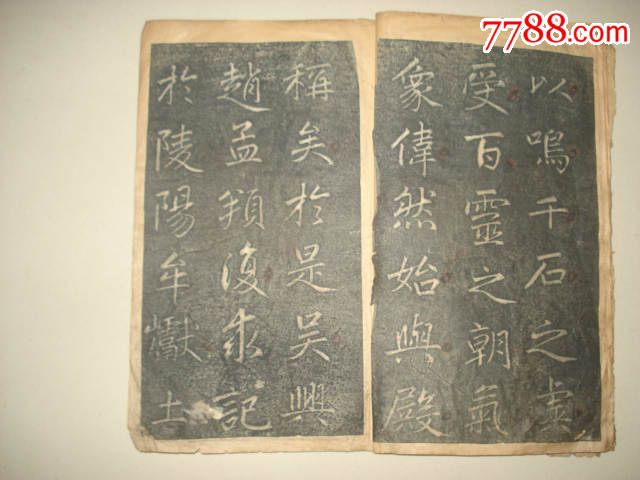 7788.com
中国收藏热线
以鳴千石之虡
受百靈之朝氣
象偉然始與殿
稱矣於是吳興
趙孟頫復求記
於陵陽牟巘土